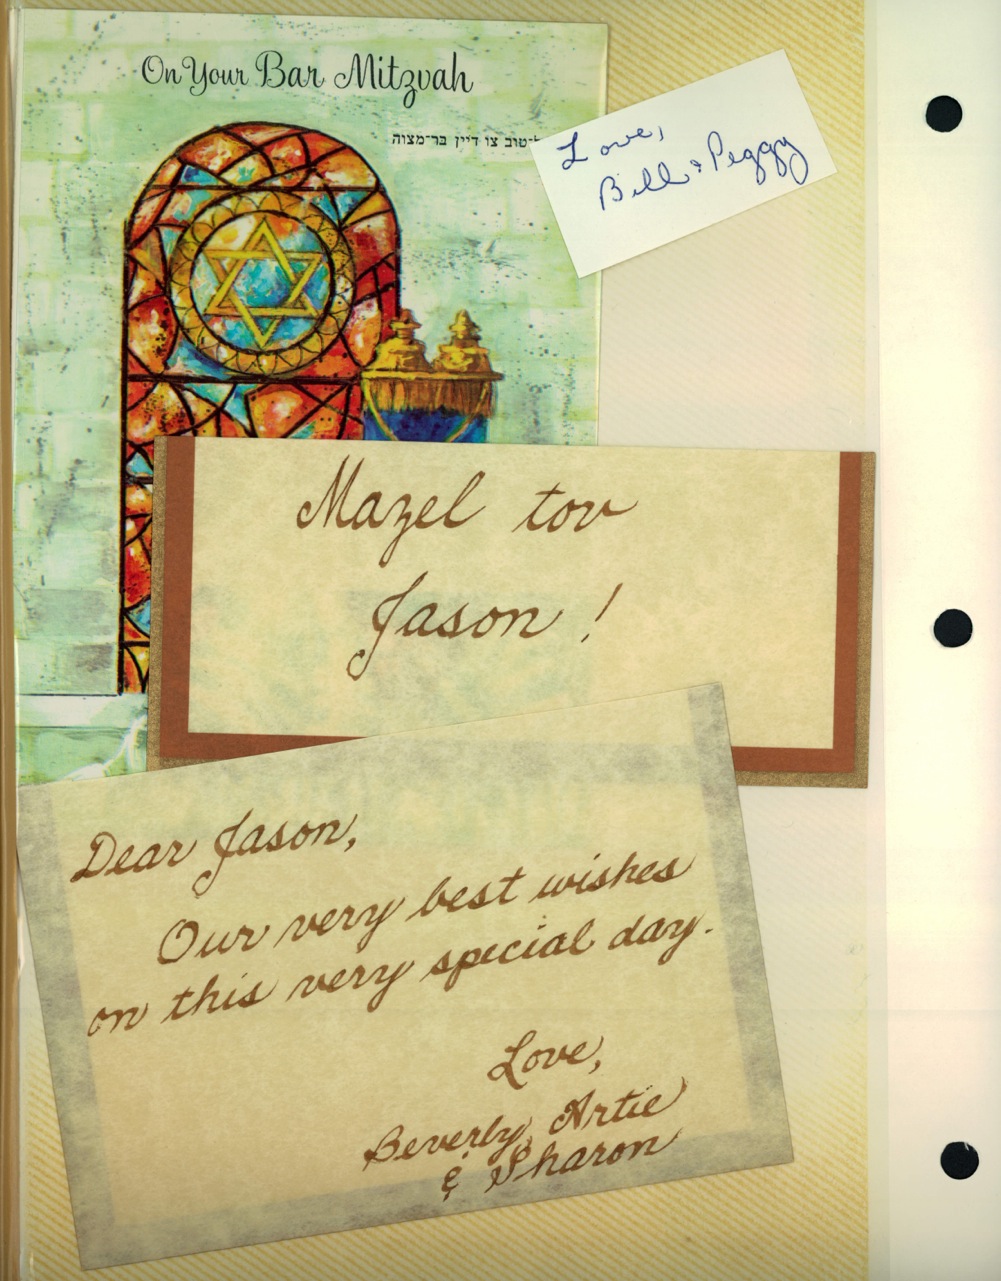 On Your Bar Mitzvah
־טוב צו דיין בר־מצוה
Love,
Bill & Peggy
Mazel tov
Jason!
Dear Jason,
Our very best wishes
on this very special day.
Love,
Beverly, Artie
& Sharon